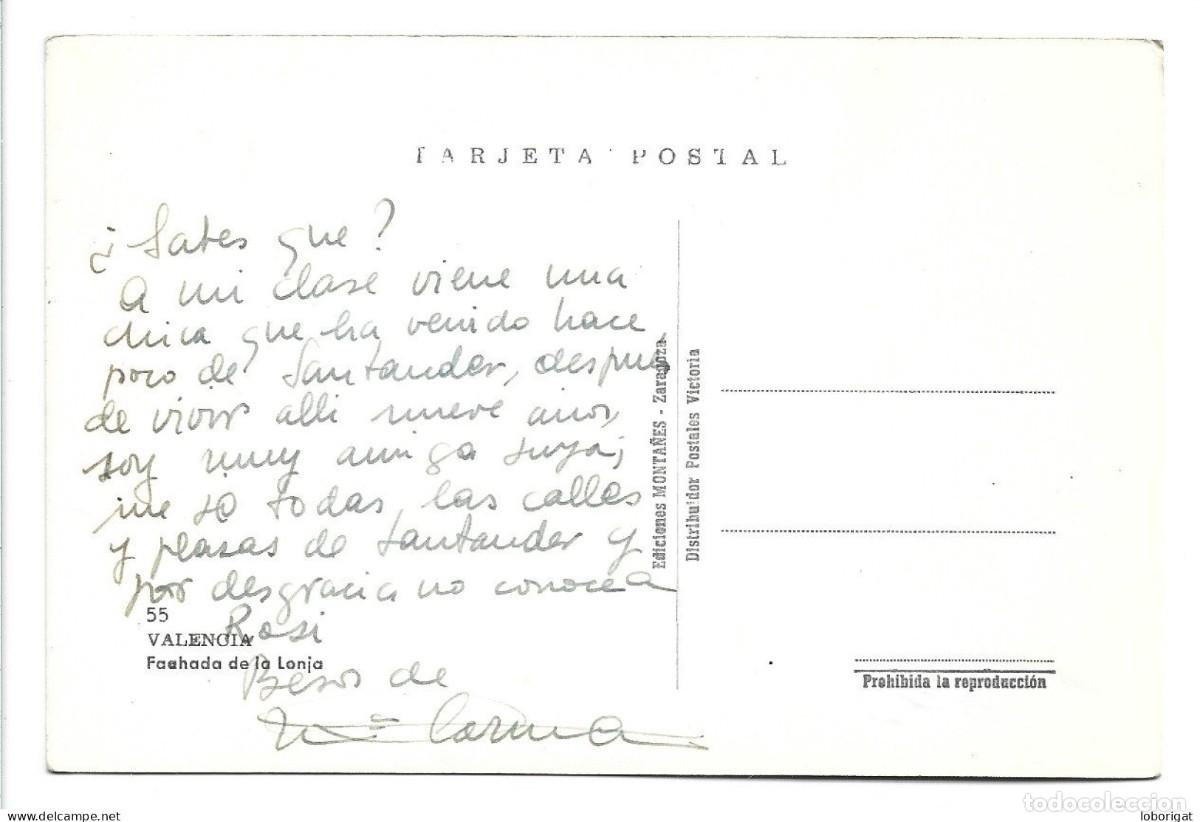 TARJETA POSTAL
¿Sabes que?
A mi clase viene una
chica que ha venido hace
poco de Santander, despues
de vivir alli nueve años,
soy muy amiga suya;
me se todas las calles
y plasas de Santander y
por desgracia no conoce a
Rosi
Besos de
Mª Carma
55
VALENCIA
Fachada de la Lonja
Ediciones MONTAÑES - Zaragoza.
Distribuidor Postales Victoria
Prohibida la reproducción
todocoleccion
www.delcampe.net
loborigat